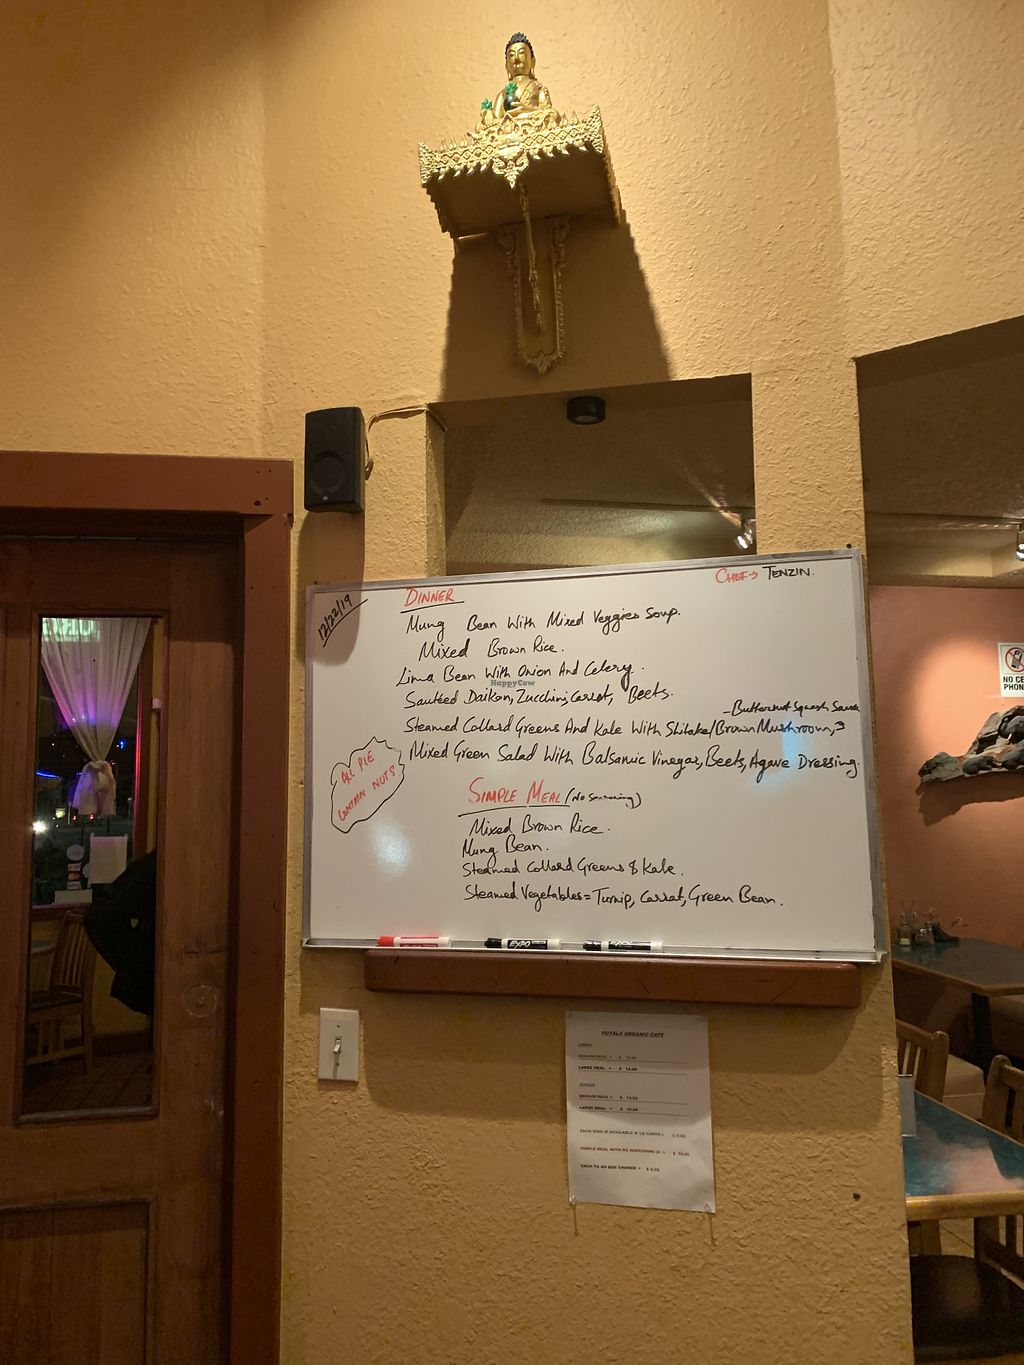 12/22/19
CHEF→ TENZIN.
DINNER
Mung Bean With Mixed Veggies Soup.
Mixed Brown Rice.
Lima Bean With Onion And Celery.
HappyCow
Sautéed Daikon, Zucchini, Carrot, Beets.
-Butternut Squash Sauce
Steamed Collard Greens And Kale With Shitake/Brown Mushroom,
Mixed Green Salad With Balsamic Vinegar, Beets, Agave Dressing.
ALL PIE
CONTAIN NUTS
SIMPLE MEAL (No Seasoning)
Mixed Brown Rice.
Mung Bean.
Steamed Collard Greens & Kale.
Steamed Vegetables = Turnip, Carrot, Green Bean.
EXPO
NO CE
PHON
POTALA ORGANIC CAFE
LUNCH
MEDIUM MEAL = $
LARGE MEAL = $ 14.00
DINNER
MEDIUM MEAL = $
LARGE MEAL = $
EACH DISH IS AVAILABLE A' LA CARTE = $
SIMPLE MEAL WITH NO SEASONING IS = $
EACH TO GO BOX CHARGE = $